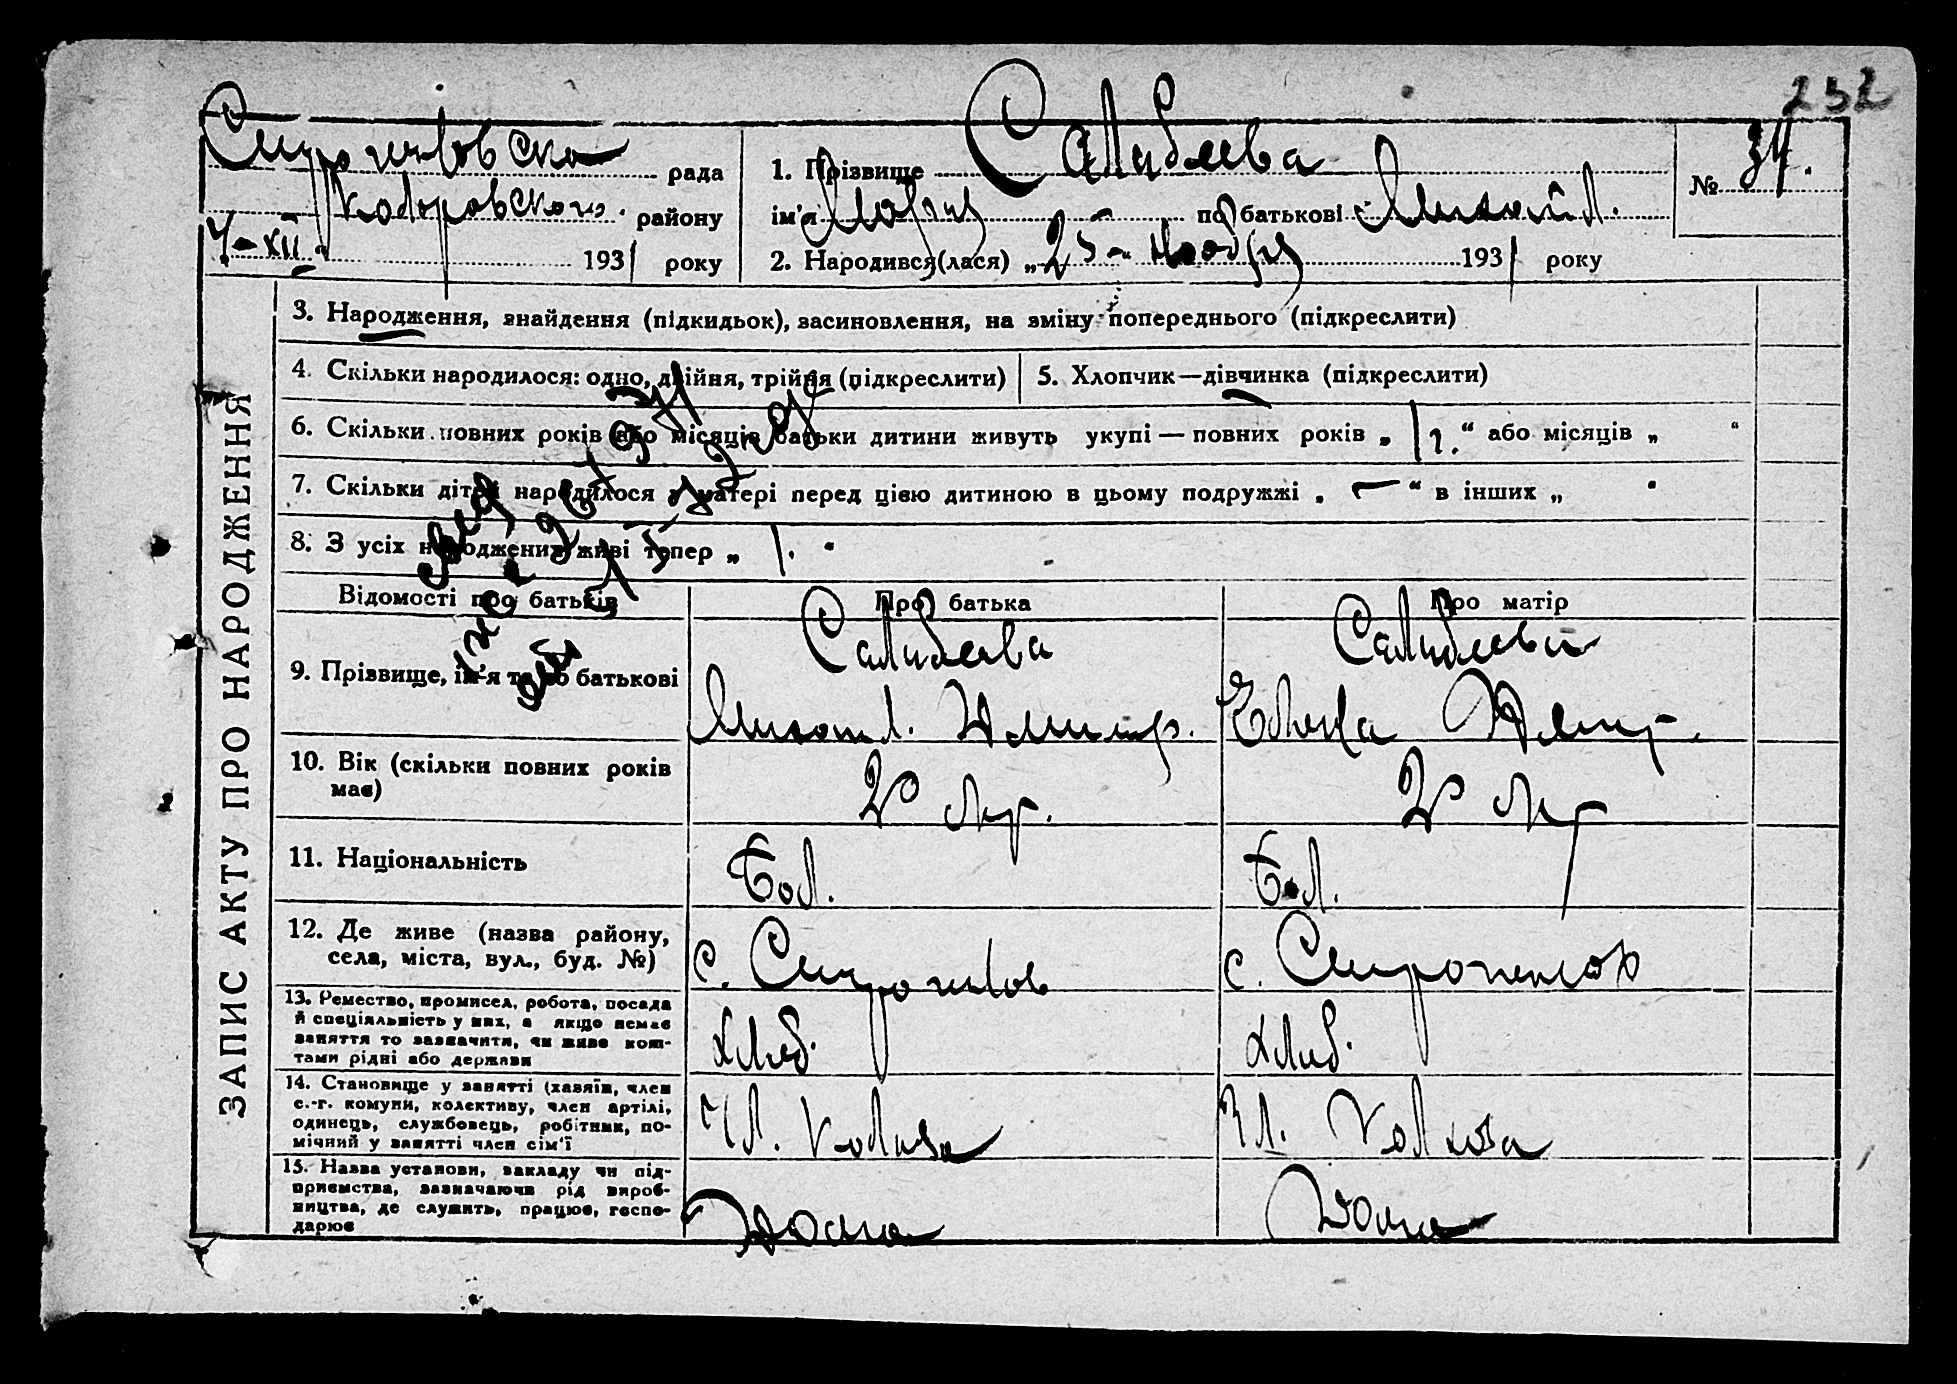 232
рада
1. Прізвище Салибаева
№ 34.
району
ім'я Мария по батькові Михайл.
4-XII 1931 року
2. Народився(лася) „25“ ноября 1931 року
ЗАПИС АКТУ ПРО НАРОДЖЕННЯ
3. Народження, знайдення (підкидьок), засиновлення, на зміну попереднього (підкреслити)
4. Скільки народилося: одно, двійня, трійня (підкреслити)
5. Хлопчик—дівчинка (підкреслити)
6. Скільки повних років або місяців батьки дитини живуть укупі — повних років „1 г.“ або місяців „ “
7. Скільки дітей народилося у матері перед цією дитиною в цьому подружжі „—“ в інших „ “
8. З усіх народжених живі тепер „1.“
Відомості про батьків
Про батька
Про матір
9. Прізвище, ім'я та по батькові
Салибаева
Михаил. Дмитр.
Салибаева
Елена Дмитр.
10. Вік (скільки повних років має)
20 л.
20 л.
11. Національність
Бол.
Бол.
12. Де живе (назва району,
села, міста, вул., буд. №)
с.
с.
13. Ремество, промисел, робота, посада
й спеціяльність у них, а якщо немає
заняття то зазначити, чи живе кош-
тами рідні або держави
Хлиб.
Хлиб.
14. Становище у занятті (хазяїн, член
с.-г. комуни, колективу, член артілі,
одинець, службовець, робітник, по-
мічний у занятті член сім'ї
Чл. Колхоза
Чл. Колхоза
15. Назва установи, закладу чи під-
приємства, зазначаючи рід вироб-
ництва, де служить, працює, госпо-
дарює
Дома
Дома